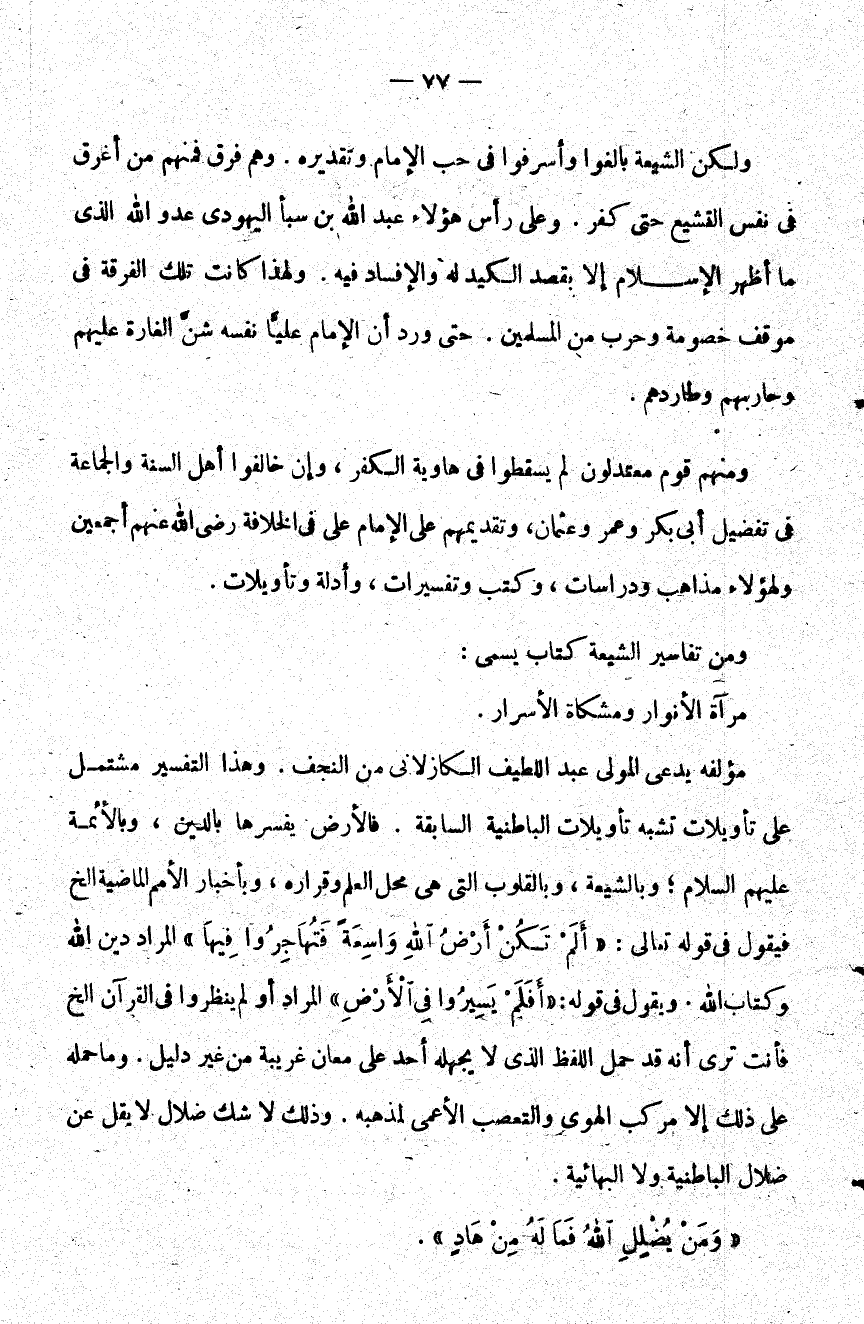 — ٧٧ —
ولكن الشيعة بالغوا وأسرفوا فى حب الإمام وتقديره . وهم فرق فمنهم من أغرق
فى نفس التشيع حتى كفر . وعلى رأس هؤلاء عبد الله بن سبأ اليهودى عدو الله الذى
ما أظهر الإســـلام إلا بقصد الكيد له والإفساد فيه . ولهذا كانت تلك الفرقة فى
موقف خصومة وحرب من المسلمين . حتى ورد أن الإمام عليًّا نفسه شنَّ الغارة عليهم
وحاربهم وطاردهم .
ومنهم قوم معتدلون لم يسقطوا فى هاوية الكفر ، وإن خالفوا أهل السنة والجماعة
فى تفضيل أبى بكر وعمر وعثمان، وتقديمهم على الإمام على فى الخلافة رضى الله عنهم أجمعين
ولهؤلاء مذاهب ودراسات ، وكتب وتفسيرات ، وأدلة وتأويلات .
ومن تفاسير الشيعة كتاب يسمى :
مرآة الأنوار ومشكاة الأسرار .
مؤلفه يدعى المولى عبد اللطيف الكازلانى من النجف . وهذا التفسير مشتمـل
على تأويلات تشبه تأويلات الباطنية السابقة . فالأرض يفسرها بالدين ، وبالأئمـة
عليهم السلام ؛ وبالشيعة ، وبالقلوب التى هى محل العلم وقراره ، وبأخبار الأمم الماضية الخ
فيقول فى قوله تعالى : « أَلَمْ تَكُنْ أَرْضُ ٱللهِ وَاسِعَةً فَتُهَاجِرُوا فِيهَا » المراد دين الله
وكتاب الله . ويقول فى قوله : «أَفَلَمْ يَسِيرُوا فِى ٱلْأَرْضِ» المراد أو لم ينظروا فى القرآن الخ
فأنت ترى أنه قد حمل اللفظ الذى لا يجهله أحد على معان غريبة من غير دليل . وما حمله
على ذلك إلا مركب الهوى والتعصب الأعمى لمذهبه . وذلك لا شك ضلال لا يقل عن
ضلال الباطنية ولا البهائية .
« وَمَنْ يُضْلِلِ ٱللهُ فَمَا لَهُ مِنْ هَادٍ » .